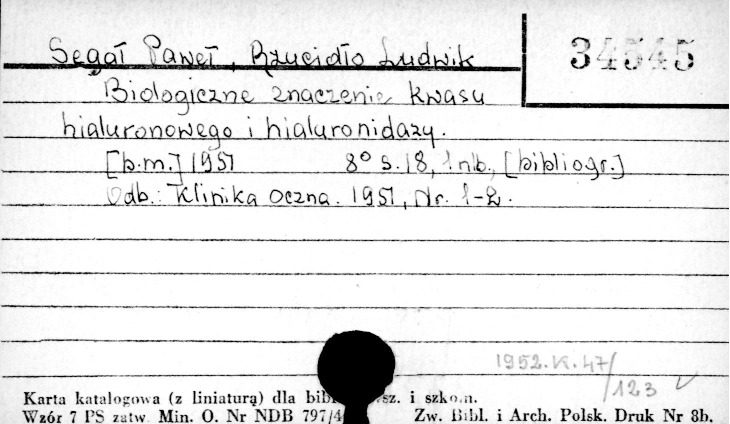 34545
Segał Paweł, Rzucidło Ludwik
Biologiczne znaczenie kwasu
hialuronowego i hialuronidazy.
[b.m.] 1951 8° s. 18, 1 nb., [bibliogr.]
Odb.: Klinika Oczna. 1951, Nr. 1-2.
1952.K.47/123
Karta katalogowa (z liniaturą) dla i szkoln.
Wzór 7 PS zatw. Min. O. Nr NDB Zw. Bibl. i Arch. Polsk. Druk Nr 8b.